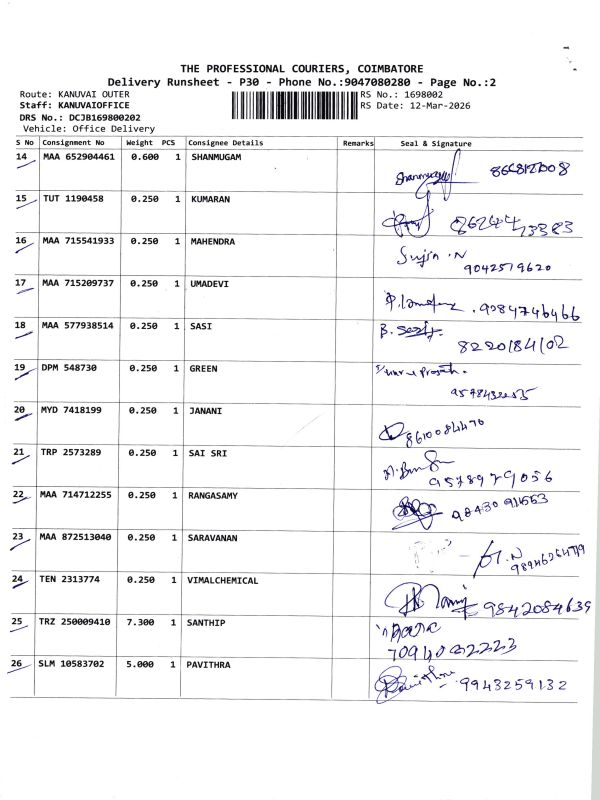 THE PROFESSIONAL COURIERS, COIMBATORE
Delivery Runsheet - P30 - Phone No.:9047080280 - Page No.:2
Route: KANUVAI OUTER
RS No.: 1698002
Staff: KANUVAIOFFICE
RS Date: 12-Mar-2026
DRS No.: DCJB169800202
Vehicle: Office Delivery
S No Consignment No Weight PCS Consignee Details Remarks Seal & Signature
14 MAA 652904461 0.600 1 SHANMUGAM Shanmugam
15 TUT 1190458 0.250 1 KUMARAN
16 MAA 715541933 0.250 1 MAHENDRA Sujin .N
9042519620
17 MAA 715209737 0.250 1 UMADEVI 9984746466
18 MAA 577938514 0.250 1 SASI B. Sasi
8220184102
19 DPM 548730 0.250 1 GREEN
20 MYD 7418199 0.250 1 JANANI 8610084470
21 TRP 2573289 0.250 1 SAI SRI
9578979056
22 MAA 714712255 0.250 1 RANGASAMY
23 MAA 872513040 0.250 1 SARAVANAN
24 TEN 2313774 0.250 1 VIMALCHEMICAL 9842084639
25 TRZ 250009410 7.300 1 SANTHIP
7094032223
26 SLM 10583702 5.000 1 PAVITHRA Pavithra 9943259132